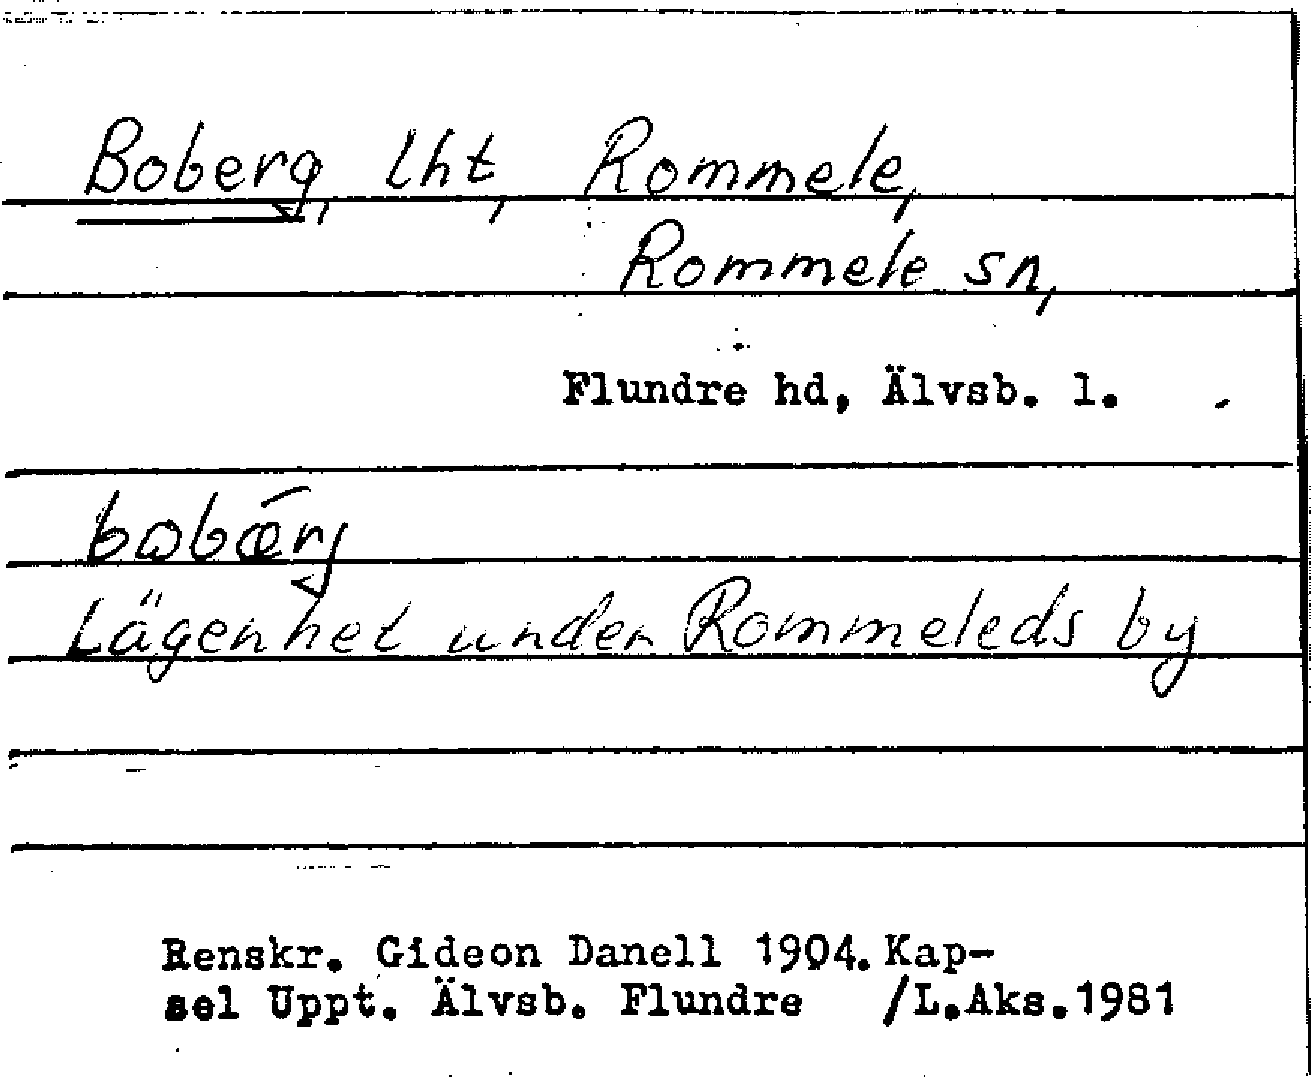 Boberg, lht, Rommele,
Rommele sn,
Flundre hd, Älvsb. l.
bobǽrj
Lägenhet under Rommeleds by
Renskr. Gideon Danell 1904. Kap-
sel Uppt. Älvsb. Flundre /L.Aks.1981